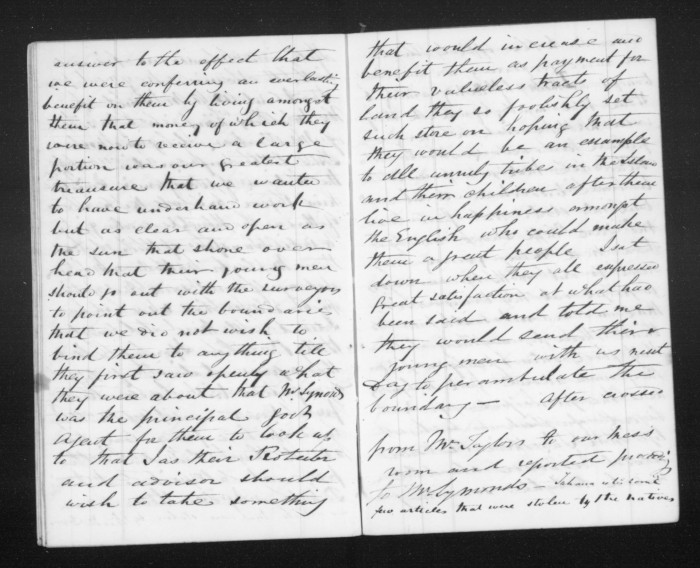 answer to the effect that
we were conferring an everlasting
benefit on them by living amongst
them that money of which they
were now to receive a large
portion was our greatest
treasure that we wanted
to have underhand work
but as clear and open as
the sun that shone over
head that their young men
should go out with the surveyors
to point out the boundaries
that we did not wish to
bind them to anything till
they first saw openly what
they were about that Mr Symonds
was the principal govt
agent for them to look up
to that I as their Protector
and advisor should
wish to take something
that would increase and
benefit them as payment for
their valueless tracts of
land they so foolishly set
such store on hoping that
they would be an example
to all unruly tribes in the Island
and their children after them
live in happiness amongst
the English who could make
them a great people I sat
down when they all expressed
great satisfaction at what had
been said and told me
they would send their
young men with us next
day to perambulate the
boundary — after crossed
from Mr Taylors to our mess
room and reported
to Mr Symonds —
few articles that were stolen by the natives